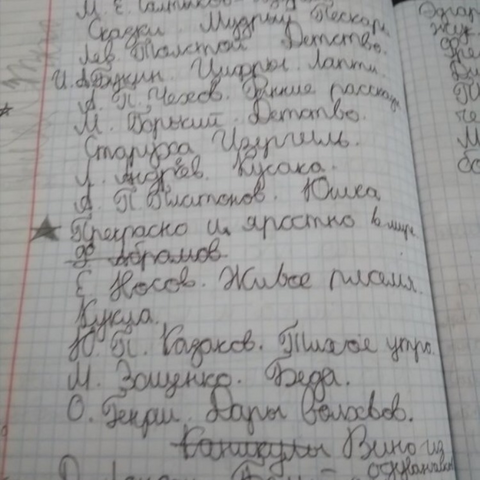 М. Е. Салтыков
Сказки. Мудрый Пескарь
Лев Толстой Детство.
И. А. Бунин. Цифры. Лапти.
А. П. Чехов. Ранние рассказы
М. Горький. Детство.
Старуха Изергиль.
Л. Андреев. Кусака.
А. П. Платонов. Юшка
Прекрасно и яростно в мире
Ф Абрамов.
Е Носов. Живое пламя.
Кукла.
Ю. П. Казаков. Тихое утро.
М. Зощенко. Беда.
О. Генри. Дары волхвов.
Каникулы Вино из
одуванчиков